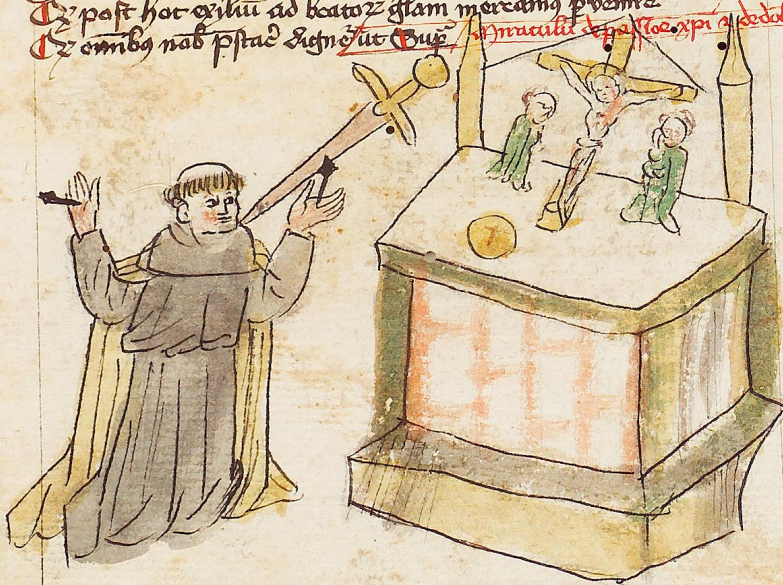 Et post hoc exiliū ad beatoꝝ glam mereamur pvenire
Ex omībꝯ nob p̄stare dignet ut Sup̄ Miraculū de passioe xpi ⁊